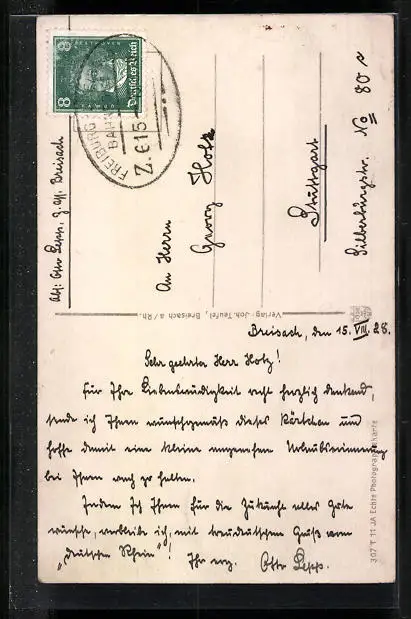 8 Deutsches Reich 8
FREIBURG
BAHN
Z. 615
Abs: Otto Lepp, z. Zt. Breisach
An Herrn
Georg Hotz
Stuttgart
Silberburgstr. No 80 a
Verlag: Joh. Teufel, Breisach a/Rh.
Breisach, den 15. VIII. 28.
Sehr geehrter Herr Hotz!
Für Ihre Liebenswürdigkeit recht herzlich dankend,
sende ich Ihnen wunschgemäß dieses Kärtchen und
hoffe damit eine kleine angenehme Urlaubserinnerung
bei Ihnen wach zu halten.
Indem ich Ihnen für die Zukunft alles Gute
wünsche, verbleibe ich, mit treudeutschem Gruß vom
„deutschen Rhein"! Ihr erg. Otto Lepp.
307 T 11 JA Echte Photographiekarte